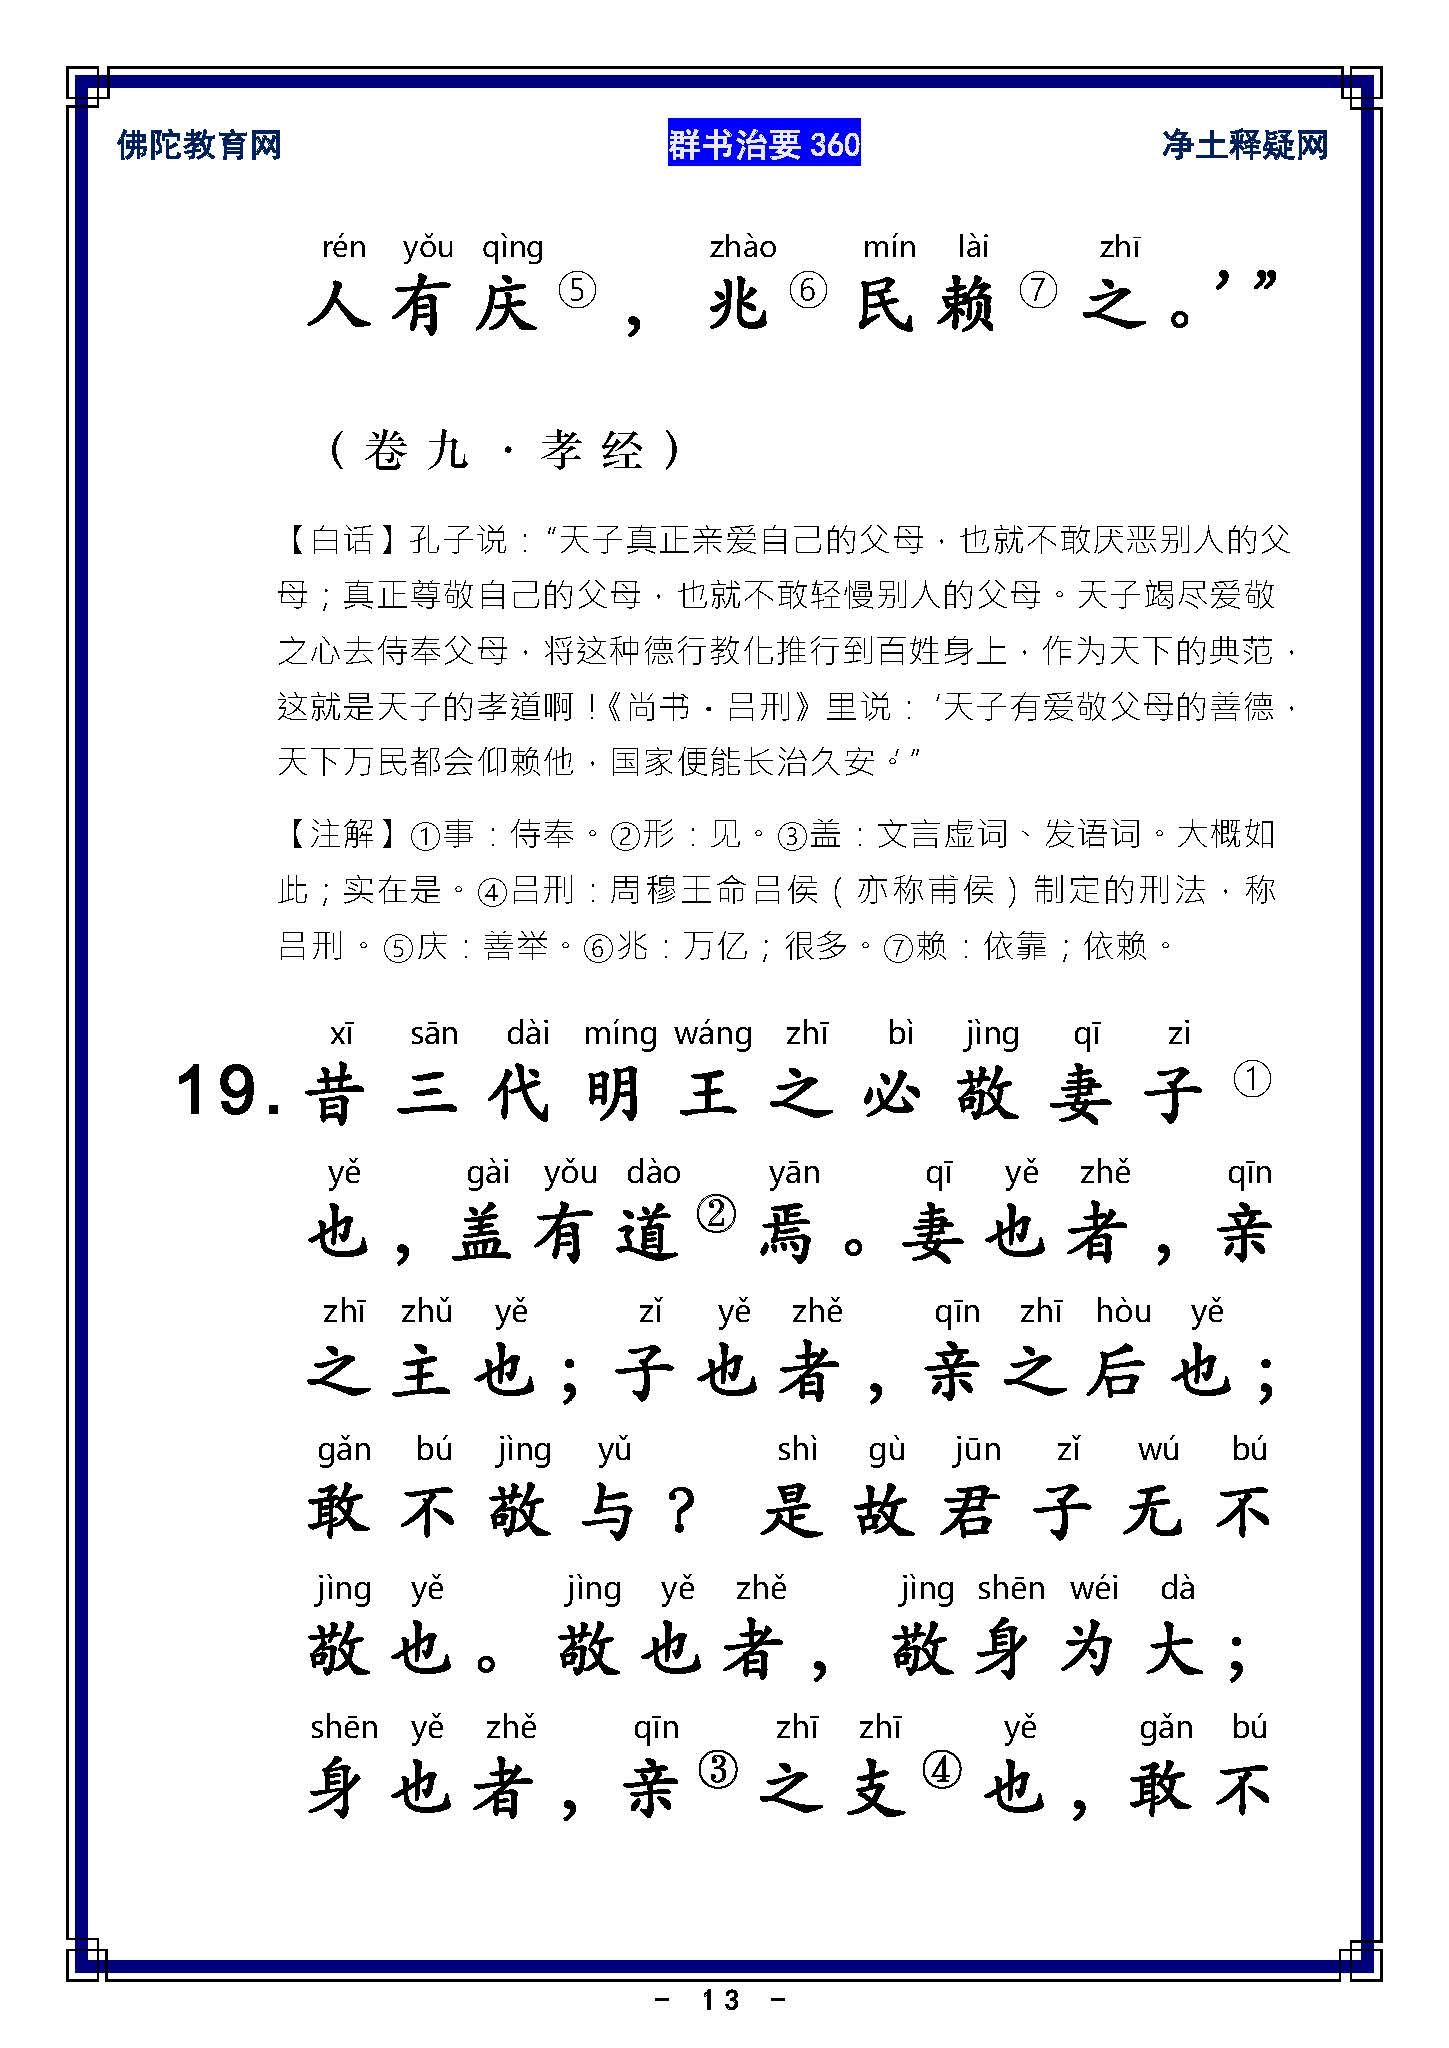 佛陀教育网 群书治要 360 净土释疑网
rén yǒu qìng zhào mín lài zhī
人有庆⑤，兆⑥民赖⑦之。’”
（卷九·孝经）
【白话】孔子说：“天子真正亲爱自己的父母，也就不敢厌恶别人的父
母；真正尊敬自己的父母，也就不敢轻慢别人的父母。天子竭尽爱敬
之心去侍奉父母，将这种德行教化推行到百姓身上，作为天下的典范，
这就是天子的孝道啊！《尚书·吕刑》里说：‘天子有爱敬父母的善德，
天下万民都会仰赖他，国家便能长治久安。’”
【注解】①事：侍奉。②形：见。③盖：文言虚词、发语词。大概如
此；实在是。④吕刑：周穆王命吕侯（亦称甫侯）制定的刑法，称
吕刑。⑤庆：善举。⑥兆：万亿；很多。⑦赖：依靠；依赖。
xī sān dài míng wáng zhī bì jìng qī zi
19.昔三代明王之必敬妻子①
yě gài yǒu dào yān qī yě zhě qīn
也，盖有道②焉。妻也者，亲
zhī zhǔ yě zǐ yě zhě qīn zhī hòu yě
之主也；子也者，亲之后也；
gǎn bú jìng yǔ shì gù jūn zǐ wú bú
敢不敬与？是故君子无不
jìng yě jìng yě zhě jìng shēn wéi dà
敬也。敬也者，敬身为大；
shēn yě zhě qīn zhī zhī yě gǎn bú
身也者，亲③之支④也，敢不
- 13 -